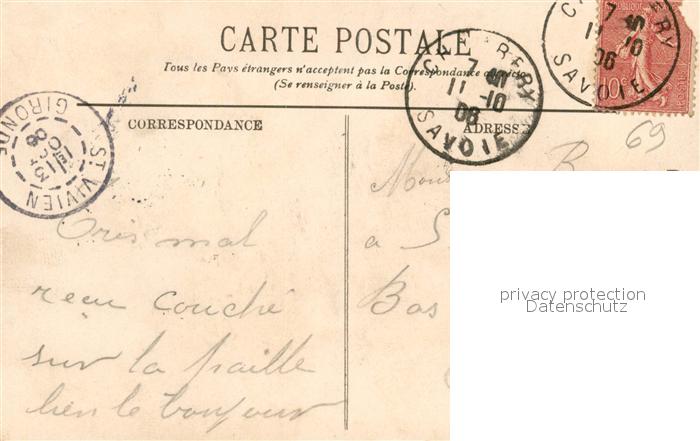 CARTE POSTALE
Tous les Pays étrangers n'acceptent pas la Correspondance au
(Se renseigner à la Poste).
CORRESPONDANCE
ADRESSE
CHAMBERY
7
11 -10
06
SAVOIE
7
11 10
06
SAVOIE
10c
69
ST VIVIEN
GIRONDE
13
OCT
06
Très mal
reçu couché
sur la paille
bien le bonjour
a S
Bas
privacy protection
Datenschutz